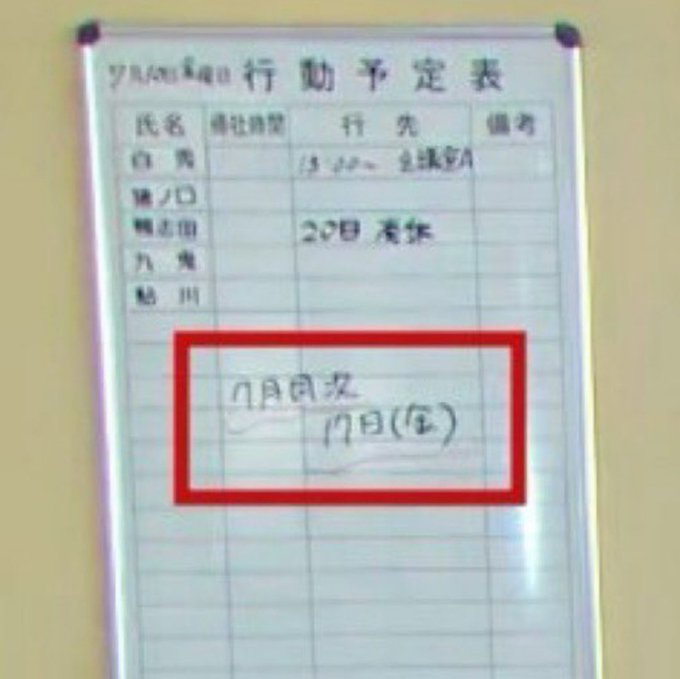 行動予定表
氏名 帰社時間 行先 備考
白鳥 13:00~ 会議室A
猪ノ口
鴨志田 20日 夏休
九鬼
鮎川
7月月次
17日(金)